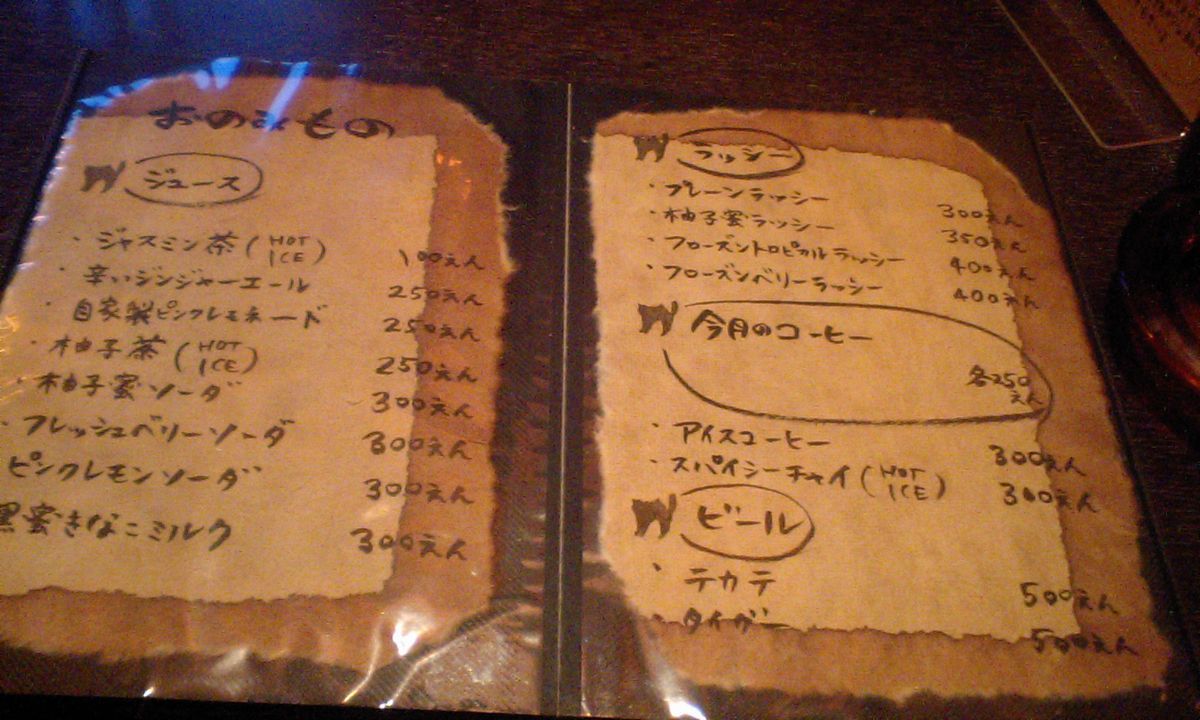 おのみもの
ジュース
・ジャスミン茶(HOT ICE) 100えん
・辛いジンジャーエール 250えん
・自家製ピンクレモネード 250えん
・柚子茶(HOT ICE) 250えん
・柚子蜜ソーダ 300えん
・フレッシュベリーソーダ 300えん
ピンクレモンソーダ 300えん
黒蜜きなこミルク 300えん
ラッシー
・プレーンラッシー 300えん
・柚子蜜ラッシー 350えん
・フローズントロピカルラッシー 400えん
・フローズンベリーラッシー 400えん
今月のコーヒー
各250えん
・アイスコーヒー 300えん
・スパイシーチャイ(HOT ICE) 300えん
ビール
・テカテ 500えん
・タイガー 500えん